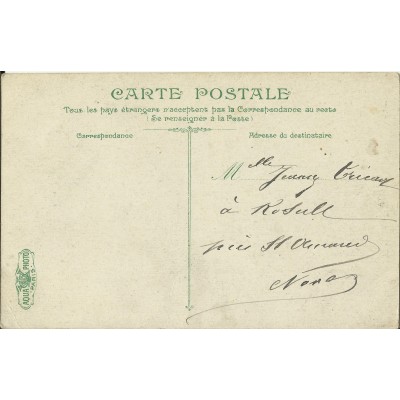 CARTE POSTALE
Tous les pays étrangers n'acceptent pas la Correspondance au recto
(Se renseigner à la Poste)
Correspondance
Adresse du destinataire
Mlle Jeanne
à Rosult
près St Amand
Nord
AQUA PHOTO
PARIS